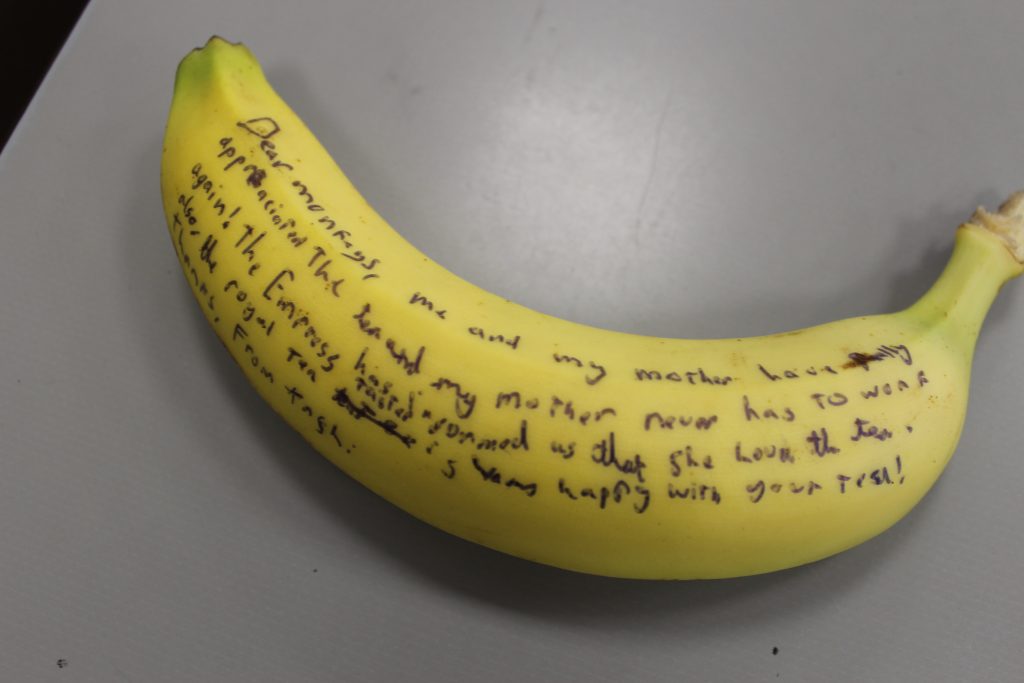 Dear monkeys, me and my mother have really
appreaciated The tea and my mother never has to work
again! The Empress has informed us that she loves the tea.
also, the royal Tea Taster is very happy with your tea!
Thanks. From Tash.